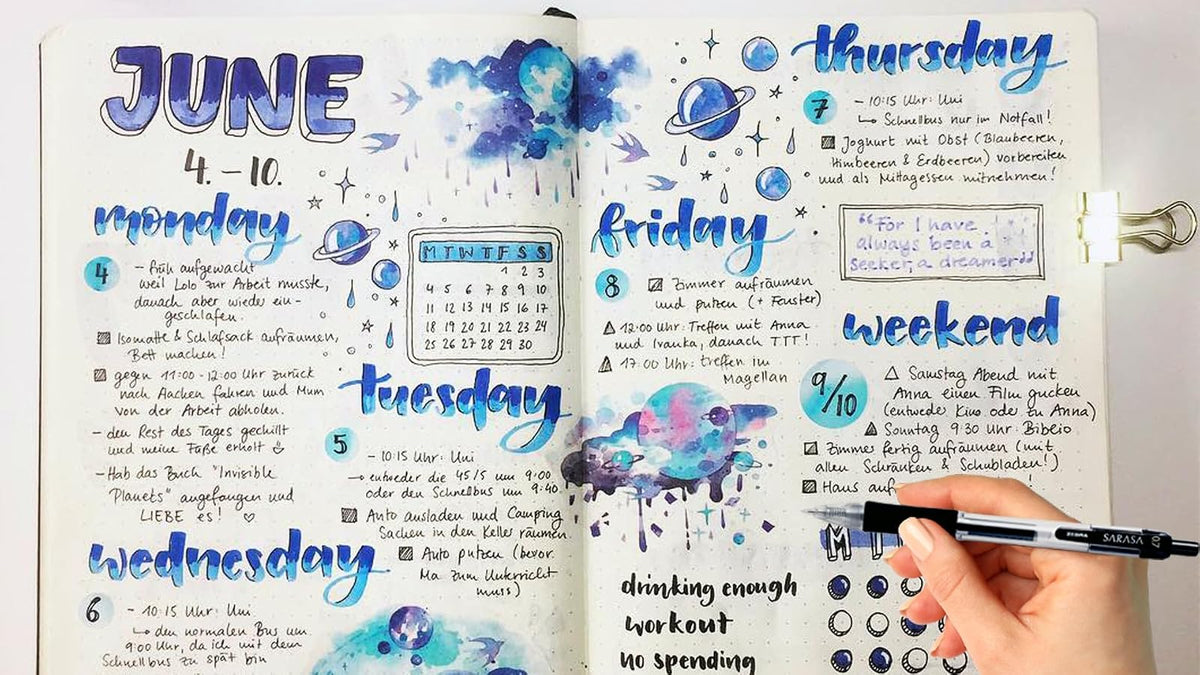 JUNE
4. – 10.
monday
4
– früh aufgewacht
weil Lolo zur Arbeit musste,
danach aber wieder ein-
geschlafen.
Isomatte & Schlafsack aufräumen,
Bett machen!
gegen 11:00 - 12:00 Uhr zurück
nach Aachen fahren und Mum
von der Arbeit abholen.
– den Rest des Tages gechillt
und meine Füße erholt
– Hab das Buch "Invisible
Planets" angefangen und
LIEBE es! ♡
M T W T F S S
1 2 3
4 5 6 7 8 9 10
11 12 13 14 15 16 17
18 19 20 21 22 23 24
25 26 27 28 29 30
tuesday
5
– 10:15 Uhr: Uni
→ entweder die 45/5 um 9:00
oder den Schnellbus um 9:40.
Auto ausladen und Camping
Sachen in den Keller räumen.
Auto putzen (bevor
Ma zum Unterricht
muss)
wednesday
6
– 10:15 Uhr: Uni
↳ den normalen Bus um
9:00 Uhr, da ich mit dem
Schnellbus zu spät bin
thursday
7
– 10:15 Uhr: Uni
↳ Schnellbus nur im Notfall!
Joghurt mit Obst (Blaubeeren,
Himbeeren & Erdbeeren) vorbereiten
und als Mittagessen mitnehmen!
friday
8
Zimmer aufräumen
und putzen (+ Fenster)
12:00 Uhr: Treffen mit Anna
und Ivanka, danach TTT!
17:00 Uhr: treffen im
Magellan
"For I have
always been a
seeker, a dreamer"
weekend
9/10
Samstag Abend mit
Anna einen Film gucken
(entweder Kino oder zu Anna)
Sonntag 9:30 Uhr: Bibeio
Zimmer fertig aufräumen (mit
allen Schränken & Schubladen!)
Haus
M T
drinking enough
workout
no spending
ZEBRA SARASA 0.7